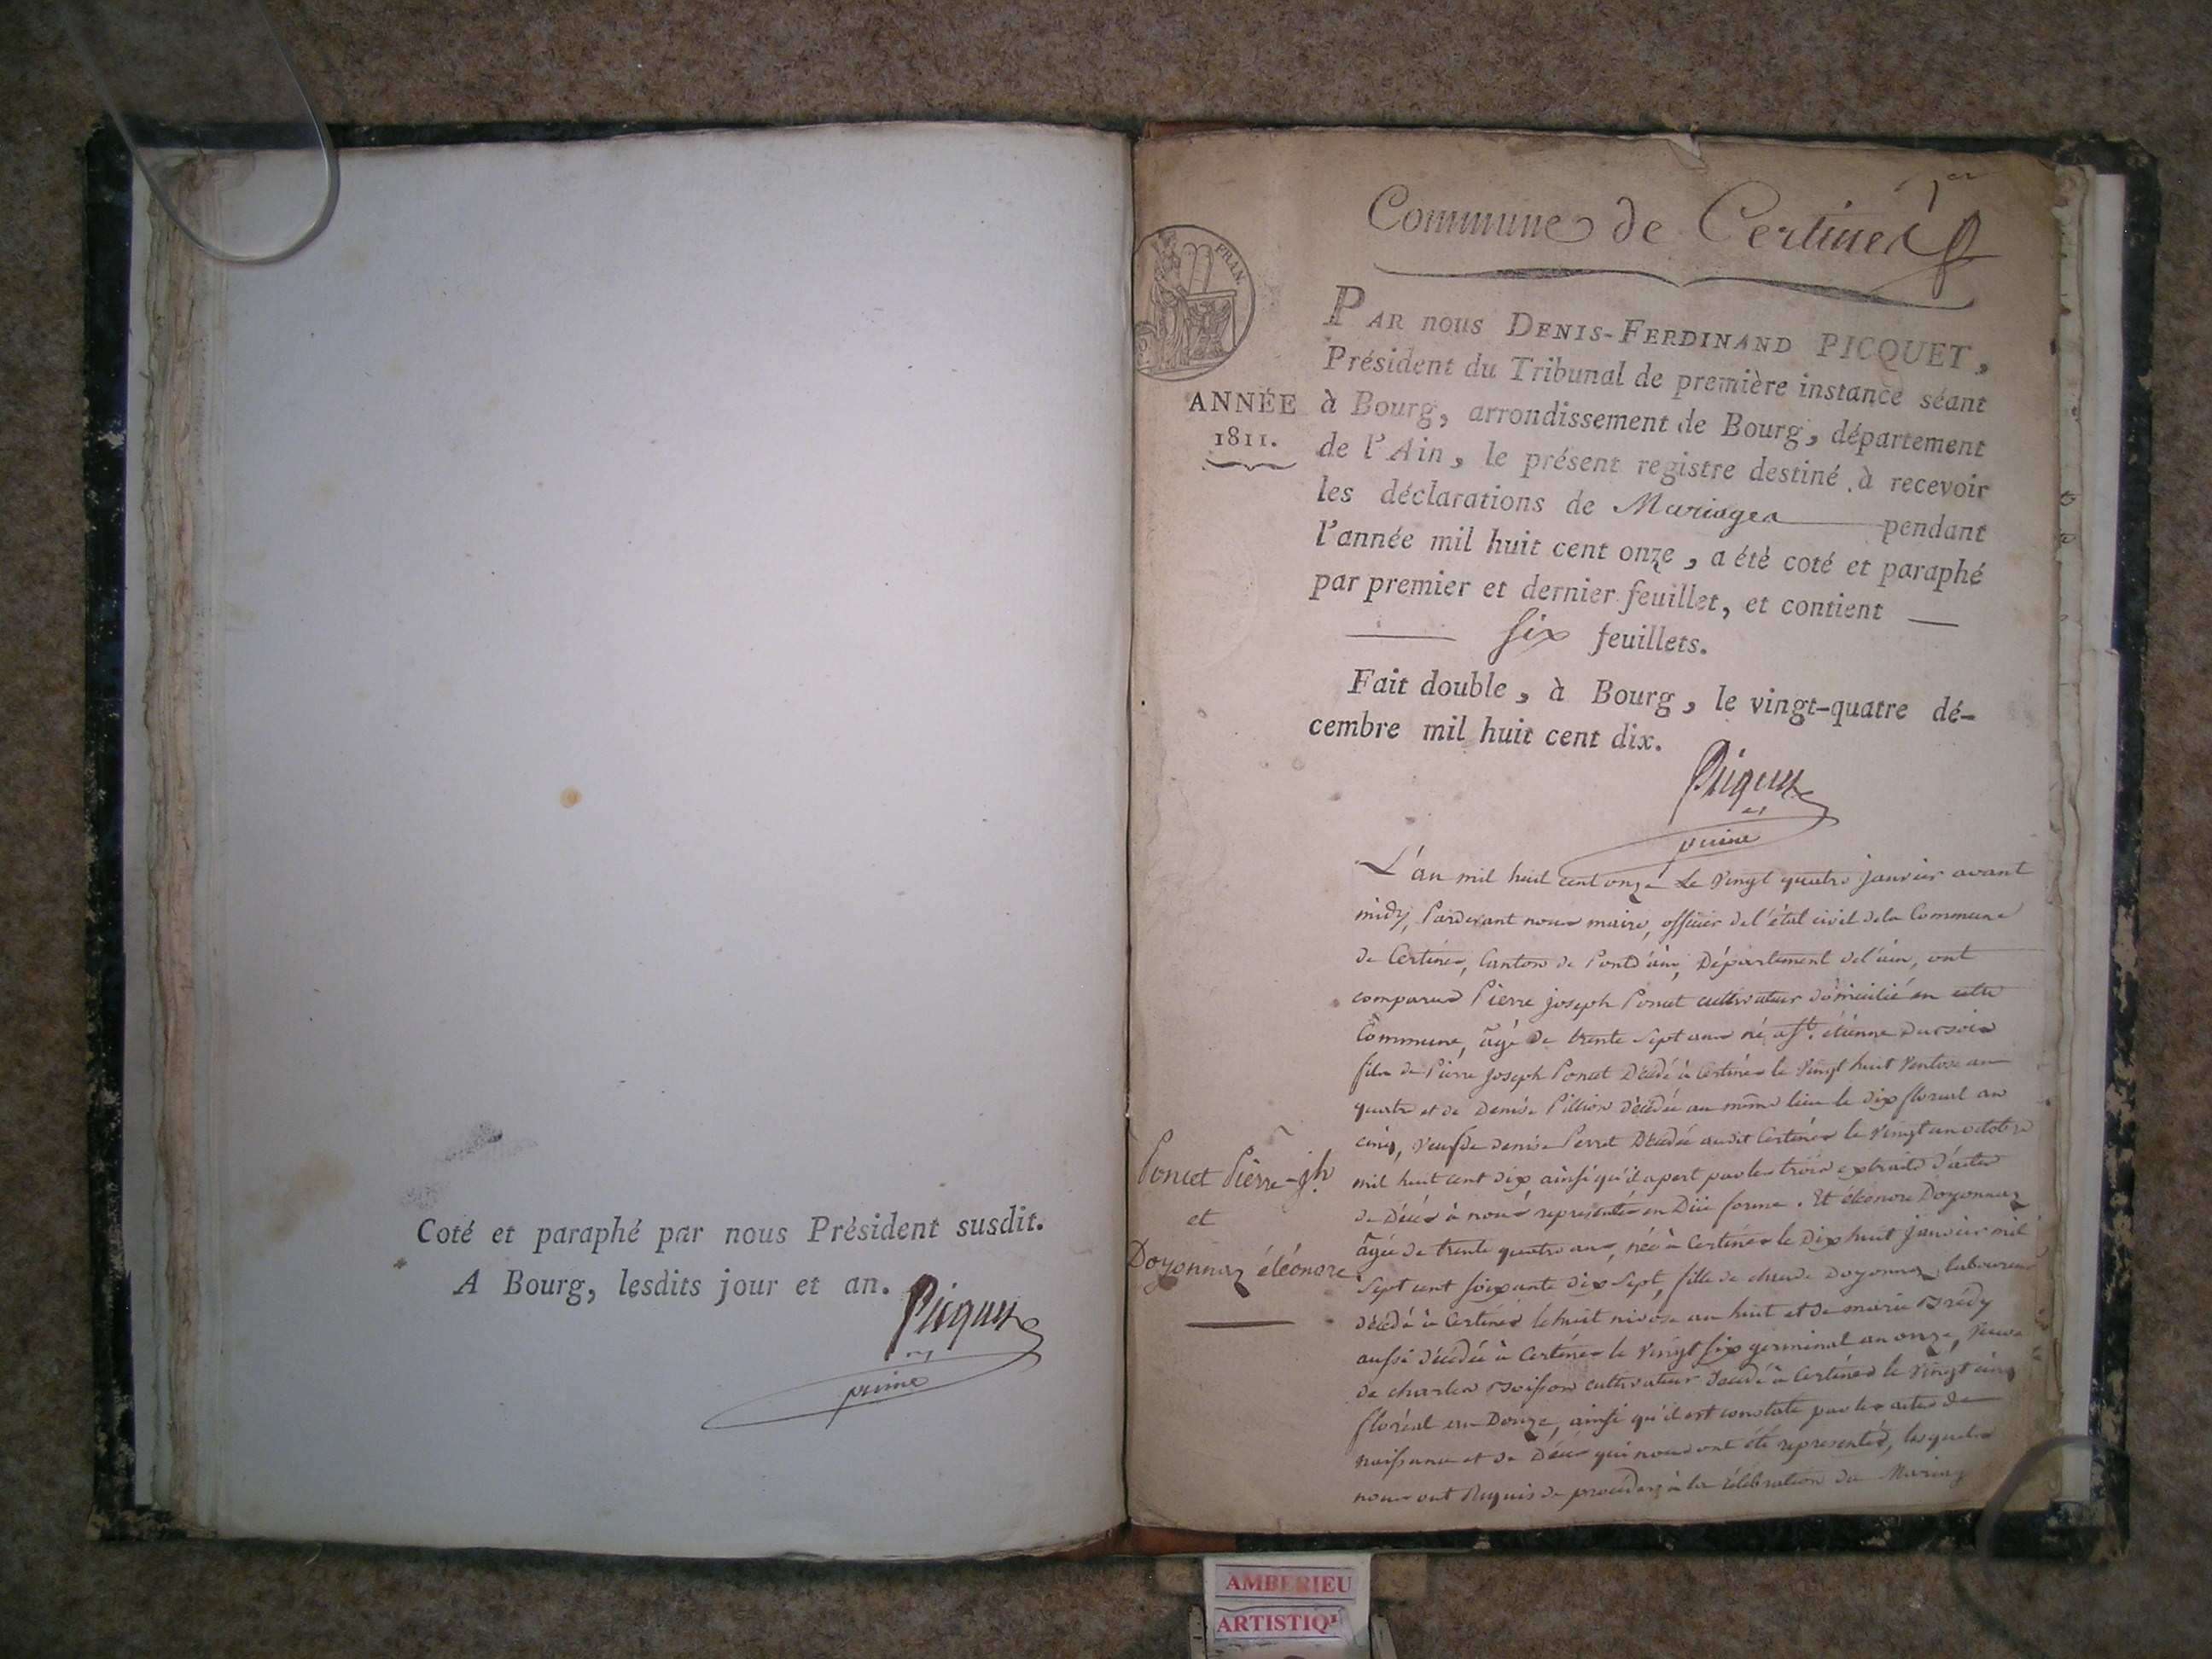 Coté et paraphé par nous Président susdit.
A Bourg, lesdits jour et an.
Picquet
1er
Commune de Certines
FRAN.
ANNÉE
1811.
PAR nous DENIS-FERDINAND PICQUET,
Président du Tribunal de première instance séant
à Bourg, arrondissement de Bourg, département
de l'Ain, le présent registre destiné à recevoir
les déclarations de Mariages pendant
l'année mil huit cent onze, a été coté et paraphé
par premier et dernier feuillet, et contient —
— six feuillets.
Fait double, à Bourg, le vingt-quatre dé-
cembre mil huit cent dix.
Picquet
Poncet Pierre-jh
et
Doyonnaz éléonore
L'an mil huit cent onze Le vingt quatre janvier avant
midy, Pardevant nous maire, officier de l'état civil de la Commune
de Certines, Canton de Pontd'ain, Département de l'ain, ont
comparus Pierre joseph Poncet cultivateur domicilié en cette
Commune, âgé de trente sept ans né a st. étienne du bois
fils de Pierre Joseph Poncet Décédé à Certines le vingt huit Ventose an
quatre et de Denise Pillion décédée au même lieu le dix floreal an
cinq, veuf de denise Perret Décédée audit Certines le vingt un octobre
mil huit cent dix ainsi qu'il apert par les trois extraits d'actes
de Décès à nous representés en Due forme. Et éléonore Doyonnaz
âgée de trente quatre ans, née à Certines le Dix huit janvier mil
sept cent soixante dix sept, fille de claude Doyonnaz laboureur
décédé à Certines le huit nivose an huit et de marie Brédy
aussi décédée à Certines le vingt six germinal an onze, veuve
de charles Boisson cultivateur Décédé à Certines le vingt cinq
floréal an Douze, ainsi qu'il est constaté par les actes de
naissance et de Décès qui nous ont été representés, lesquels
nous ont Requis de proceder à la célébration du Mariag
AMBERIEU
ARTISTIQ